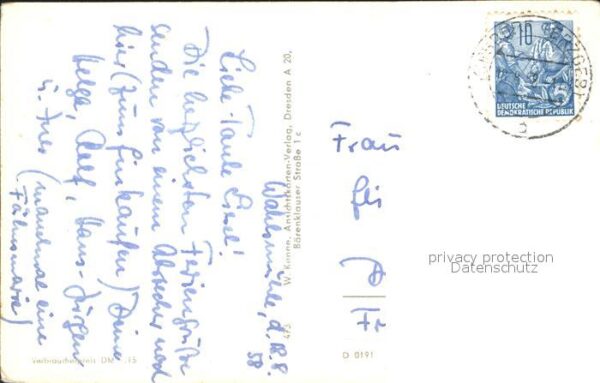 Wahlsmühle, d. 8.8.
58
Liebe Tante Liesel!
Die herzlichsten Feriengrüße
senden von einem Abstecher nach
hier (zum Einkaufen) Deine
Helga, Ralf, Hans-Jürgen
u. Ines (manchmal eine
Verbraucherpreis DM -.15
4/3
W. Kenne, Ansichtskarten-Verlag, Dresden A 20,
Bärenklauser Straße 1 c
D 0191
10
DEUTSCHE
DEMOKRATISCHE REPUBLIK
Frau
Fr
privacy protection
Datenschutz